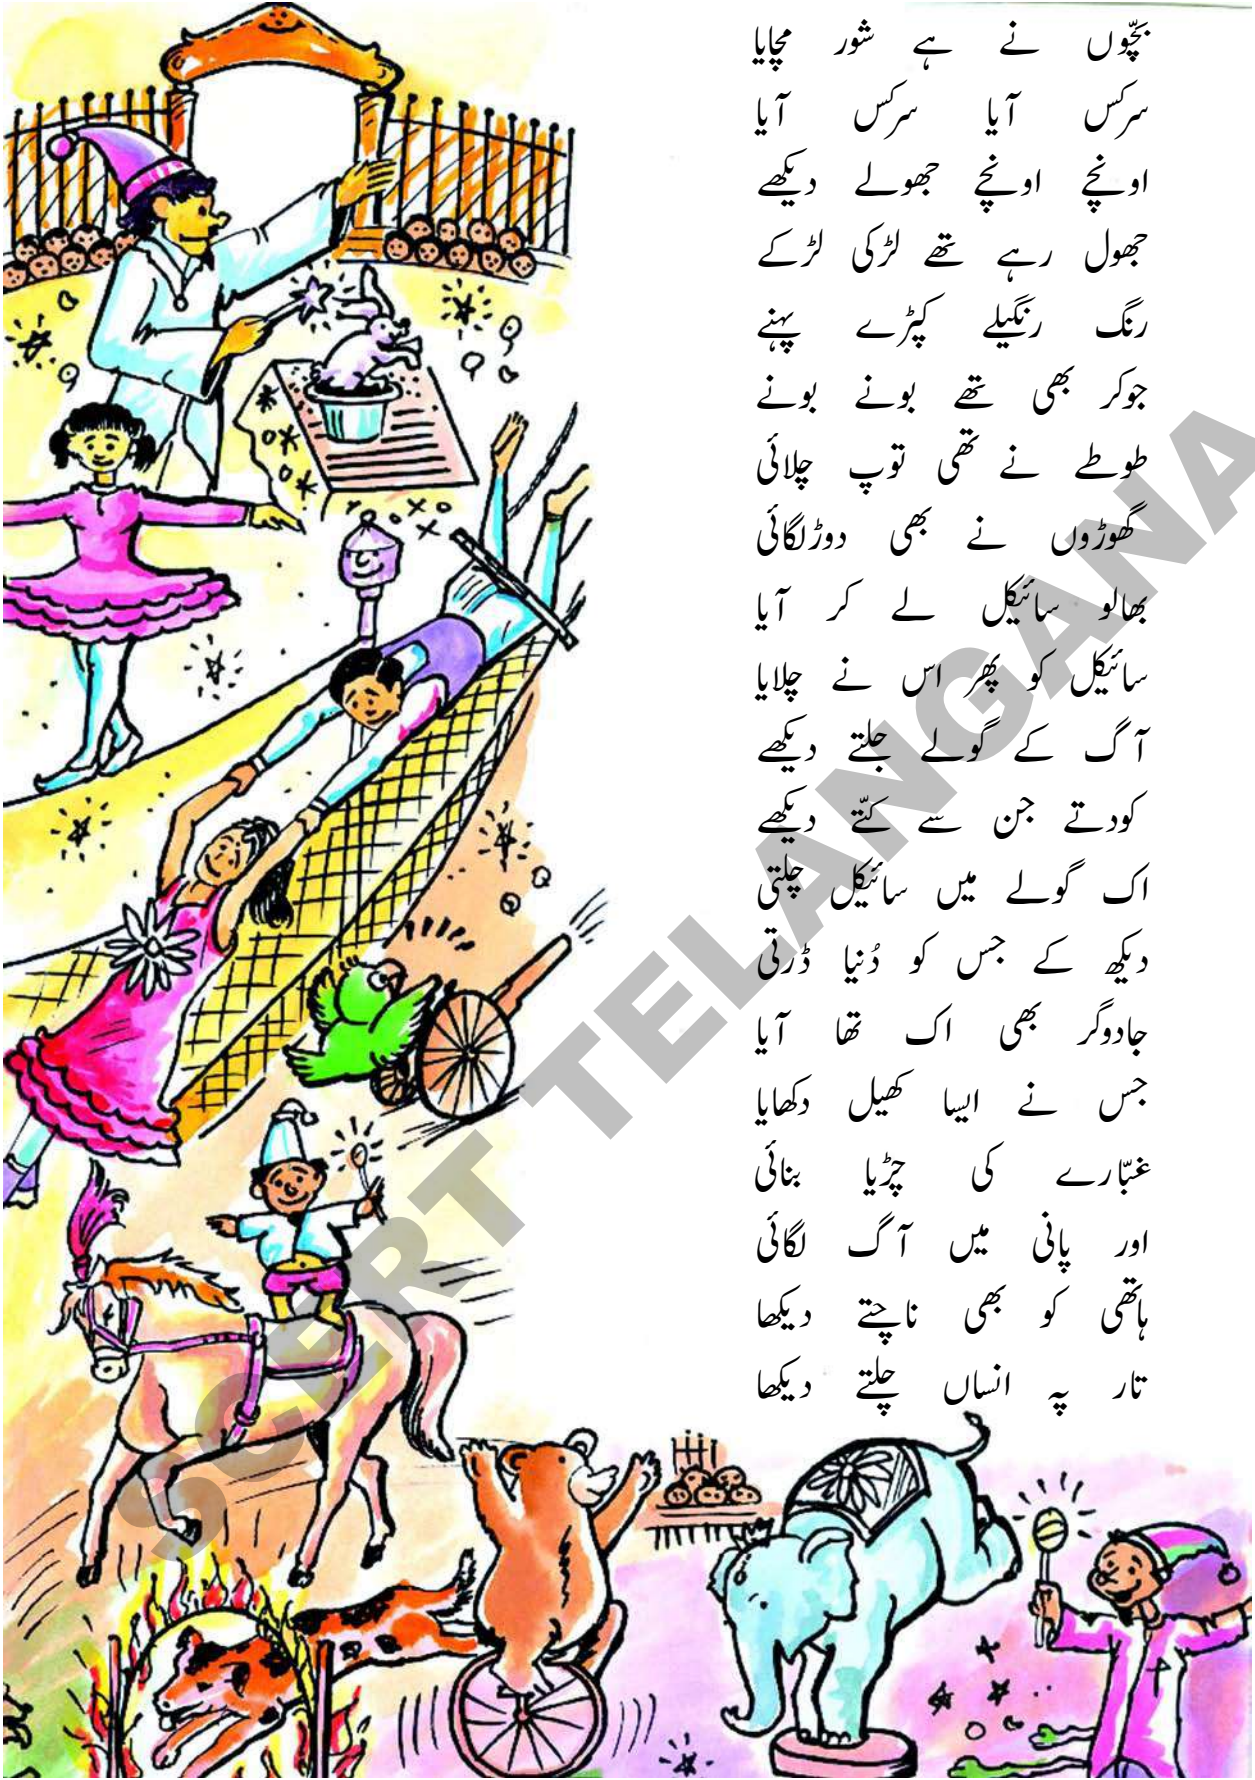 بچّوں نے ہے شور مچایا
سرکس آیا سرکس آیا
اونچے اونچے جھولے دیکھے
جھول رہے تھے لڑکی لڑکے
رنگ رنگیلے کپڑے پہنے
جوکر بھی تھے بونے بونے
طوطے نے تھی توپ چلائی
گھوڑوں نے بھی دوڑ لگائی
بھالو سائیکل لے کر آیا
سائیکل کو پھر اس نے چلایا
آگ کے گولے جلتے دیکھے
کودتے جن سے کتّے دیکھے
اک گولے میں سائیکل چلتی
دیکھ کے جس کو دُنیا ڈرتی
جادوگر بھی اک تھا آیا
جس نے ایسا کھیل دکھایا
غبّارے کی چڑیا بنائی
اور پانی میں آگ لگائی
ہاتھی کو بھی ناچتے دیکھا
تار پہ انساں چلتے دیکھا
SCERT TELANGANA